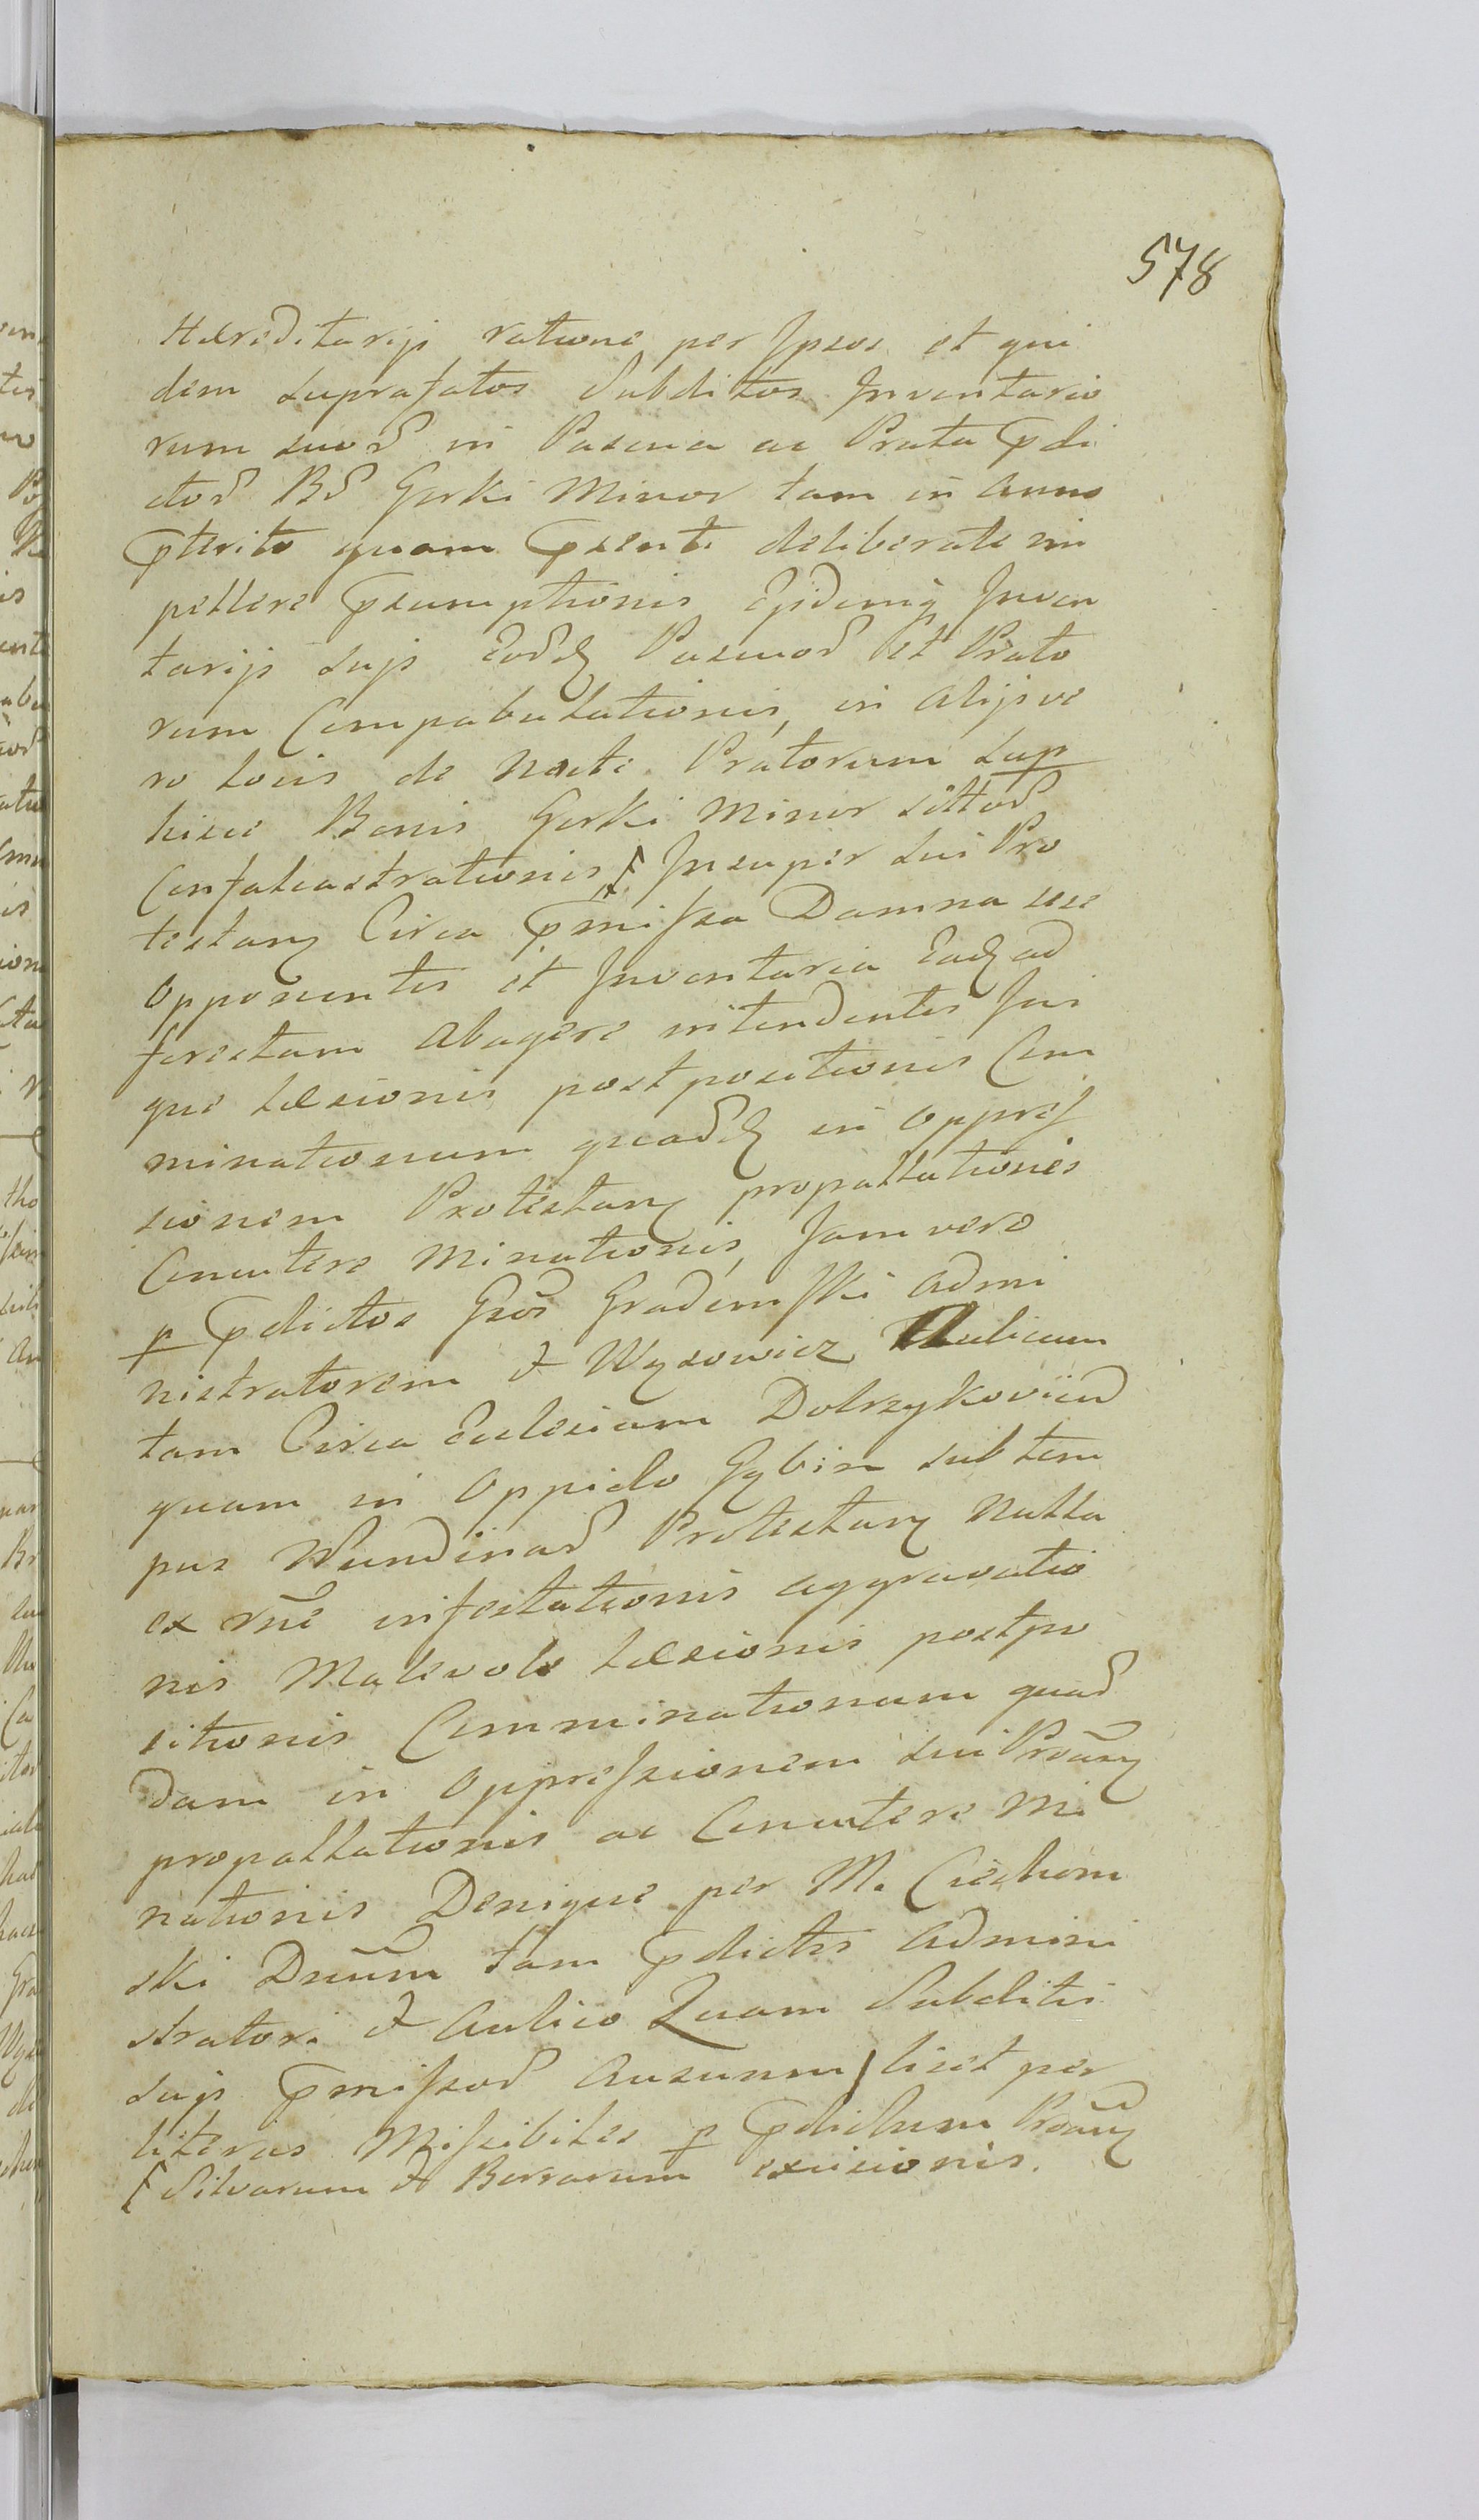 578
Hæreditarijs ratione per Ipsos et qui
dem suprafatos Subditos Inventario
rum suoꝝ in Pascua ac Prata ꝓdi
ctoꝝ Bꝝ Gorki Minor tam in anno
ꝓterito quam ꝓsenti deliberate im
pellere ꝓsumptionis Ejdemq Inven
tarijs sujs Eoꝝdꝫ Pascuoꝝ et Prato
rum Compabulationis, in alijs ve
ro locis de Nocte Pratorum sup
hisce Bonis Gorki Minor sittoꝝ
Confalcastrationis Insuper sui Pro
testanꝫ Circa ꝓmissa Damna sese
opponentis et Inventaria Eadꝫ ad
forestam abagere intendentis Jus
que læsionis postpositionis Com
minationum quaꝝdꝫ in oppres
sionem Protestanꝫ propallationis
Concutere Minationis, Jam vero
ꝑ ꝓdictos Gsos Grademski admi
nistratorem & Wysowicz Aulicum
tam Circa Ecclesiam Dobrzykovien
quam in Oppido Gybin sub tem
pus Nundinaꝝ Protestanꝫ Nulla
ex rñe infestationis aggravatio
nis Malevole læsionis postpo
sitionis Comminationum quaꝝ
dam in oppressionem sui Prõtanꝫ
propallationis ac Concutere Mi
nationis Denique per M. Ciechom
ski Dnum tam ꝓdictis admini
stratori & Aulico Quam Subditis
sujs ꝓmissoꝝ Ausuum licet per
literas Missibiles ꝑ ꝓdictum Prõtanꝫ
Silvarum & Borrarum excisionis.